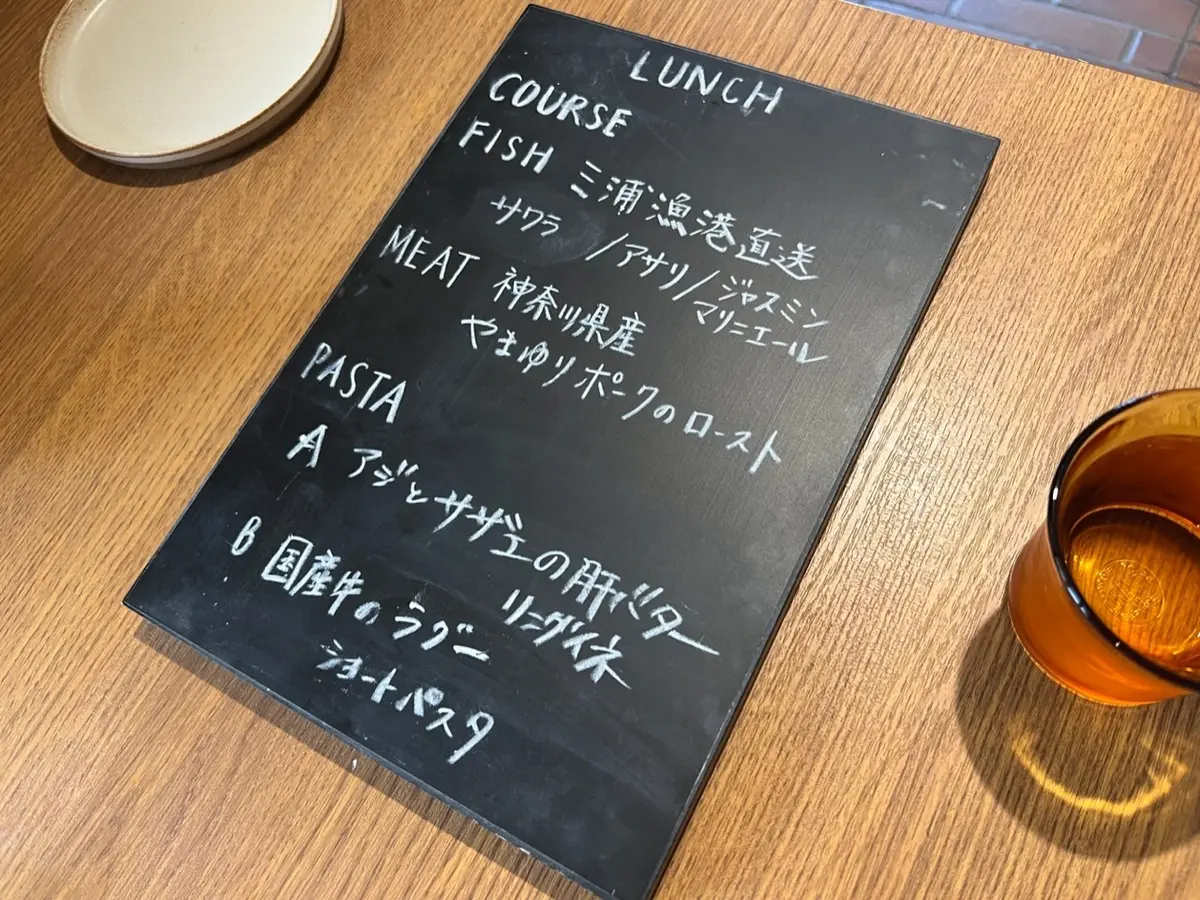 LUNCH
COURSE
FISH 三浦漁港直送
サワラ /アサリ/ジャスミン
マリニエール
MEAT 神奈川県産
やまゆりポークのロースト
PASTA
A アジとサザエの肝バター
リングイネ
B 国産牛のラグー
ショートパスタ